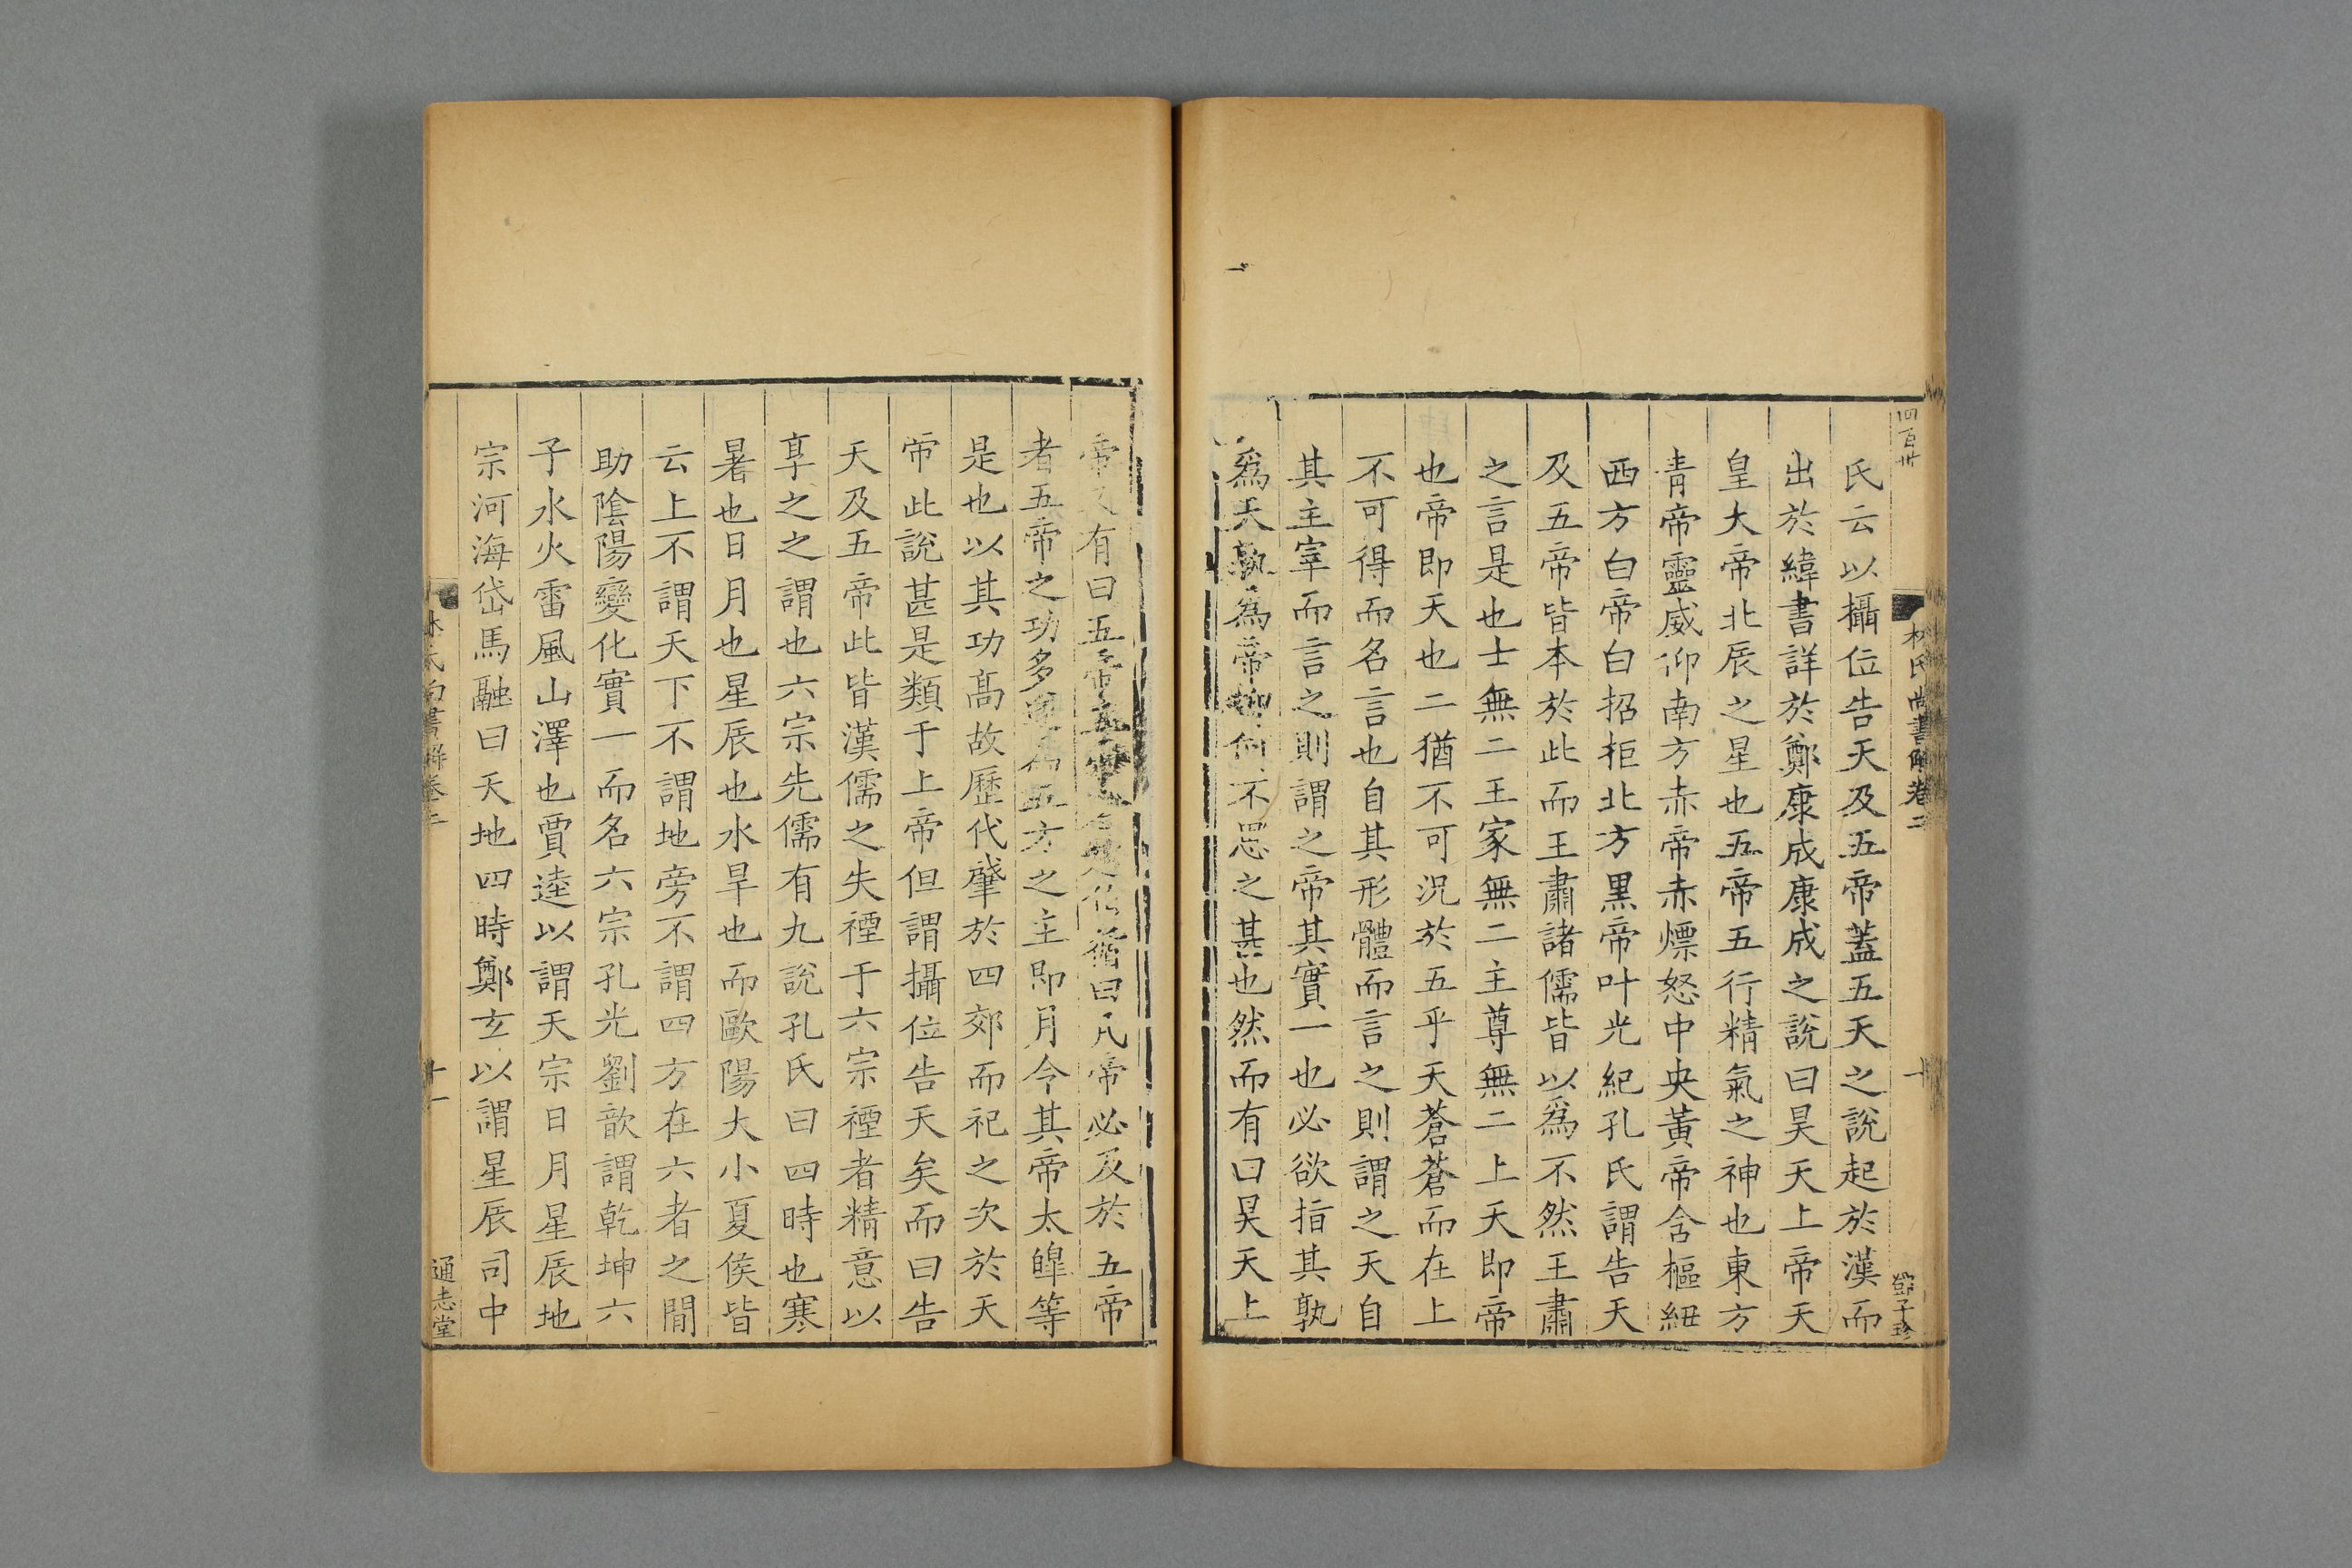 四百卅
林氏尚書解卷二
十
鄧子珍
氏云以攝位告天及五帝蓋五天之說起於漢而
出於緯書詳於鄭康成康成之說曰昊天上帝天
皇大帝北辰之星也五帝五行精氣之神也東方
青帝靈威仰南方赤帝赤熛怒中央黃帝含樞紐
西方白帝白招拒北方黑帝叶光紀孔氏謂告天
及五帝皆本於此而王肅諸儒皆以爲不然王肅
之言是也士無二王家無二主尊無二上天即帝
也帝即天也二猶不可況於五乎天蒼蒼而在上
不可得而名言也自其形體而言之則謂之天自
其主宰而言之則謂之帝其實一也必欲指其孰
爲天孰爲帝抑何不思之甚也然而有曰昊天上
帝又有曰五帝猶曰凡帝必及於五帝
者五帝之功多五方之主即月令其帝太皡等
是也以其功高故歷代肇於四郊而祀之次於天
帝此說甚是類于上帝但謂攝位告天矣而曰告
天及五帝此皆漢儒之失禋于六宗禋者精意以
享之之謂也六宗先儒有九說孔氏曰四時也寒
暑也日月也星辰也水旱也而歐陽大小夏侯皆
云上不謂天下不謂地旁不謂四方在六者之閒
助陰陽變化實一而名六宗孔光劉歆謂乾坤六
子水火雷風山澤也賈逵以謂天宗日月星辰地
宗河海岱馬融曰天地四時鄭玄以謂星辰司中
林氏尚書解卷二
十一
通志堂